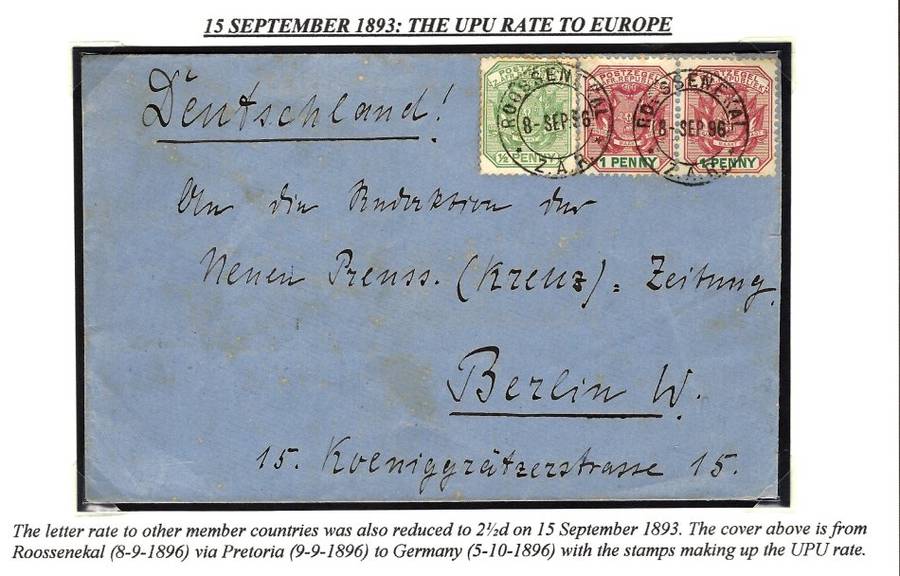 15 SEPTEMBER 1893: THE UPU RATE TO EUROPE
Deutschland!
ROOSSENEKAL
8-SEP.96
Z.A.R.
½ PENNY
POSTZEGEL
1 PENNY
ROOSSENEKAL
8-SEP.96
Z.A.R.
POSTZEGEL
1 PENNY
An die Redaktion der
Neuen Preuss. (Kreuz)=Zeitung
Berlin W.
15. Koeniggrätzerstrasse 15.
The letter rate to other member countries was also reduced to 2½d on 15 September 1893. The cover above is from
Roossenekal (8-9-1896) via Pretoria (9-9-1896) to Germany (5-10-1896) with the stamps making up the UPU rate.